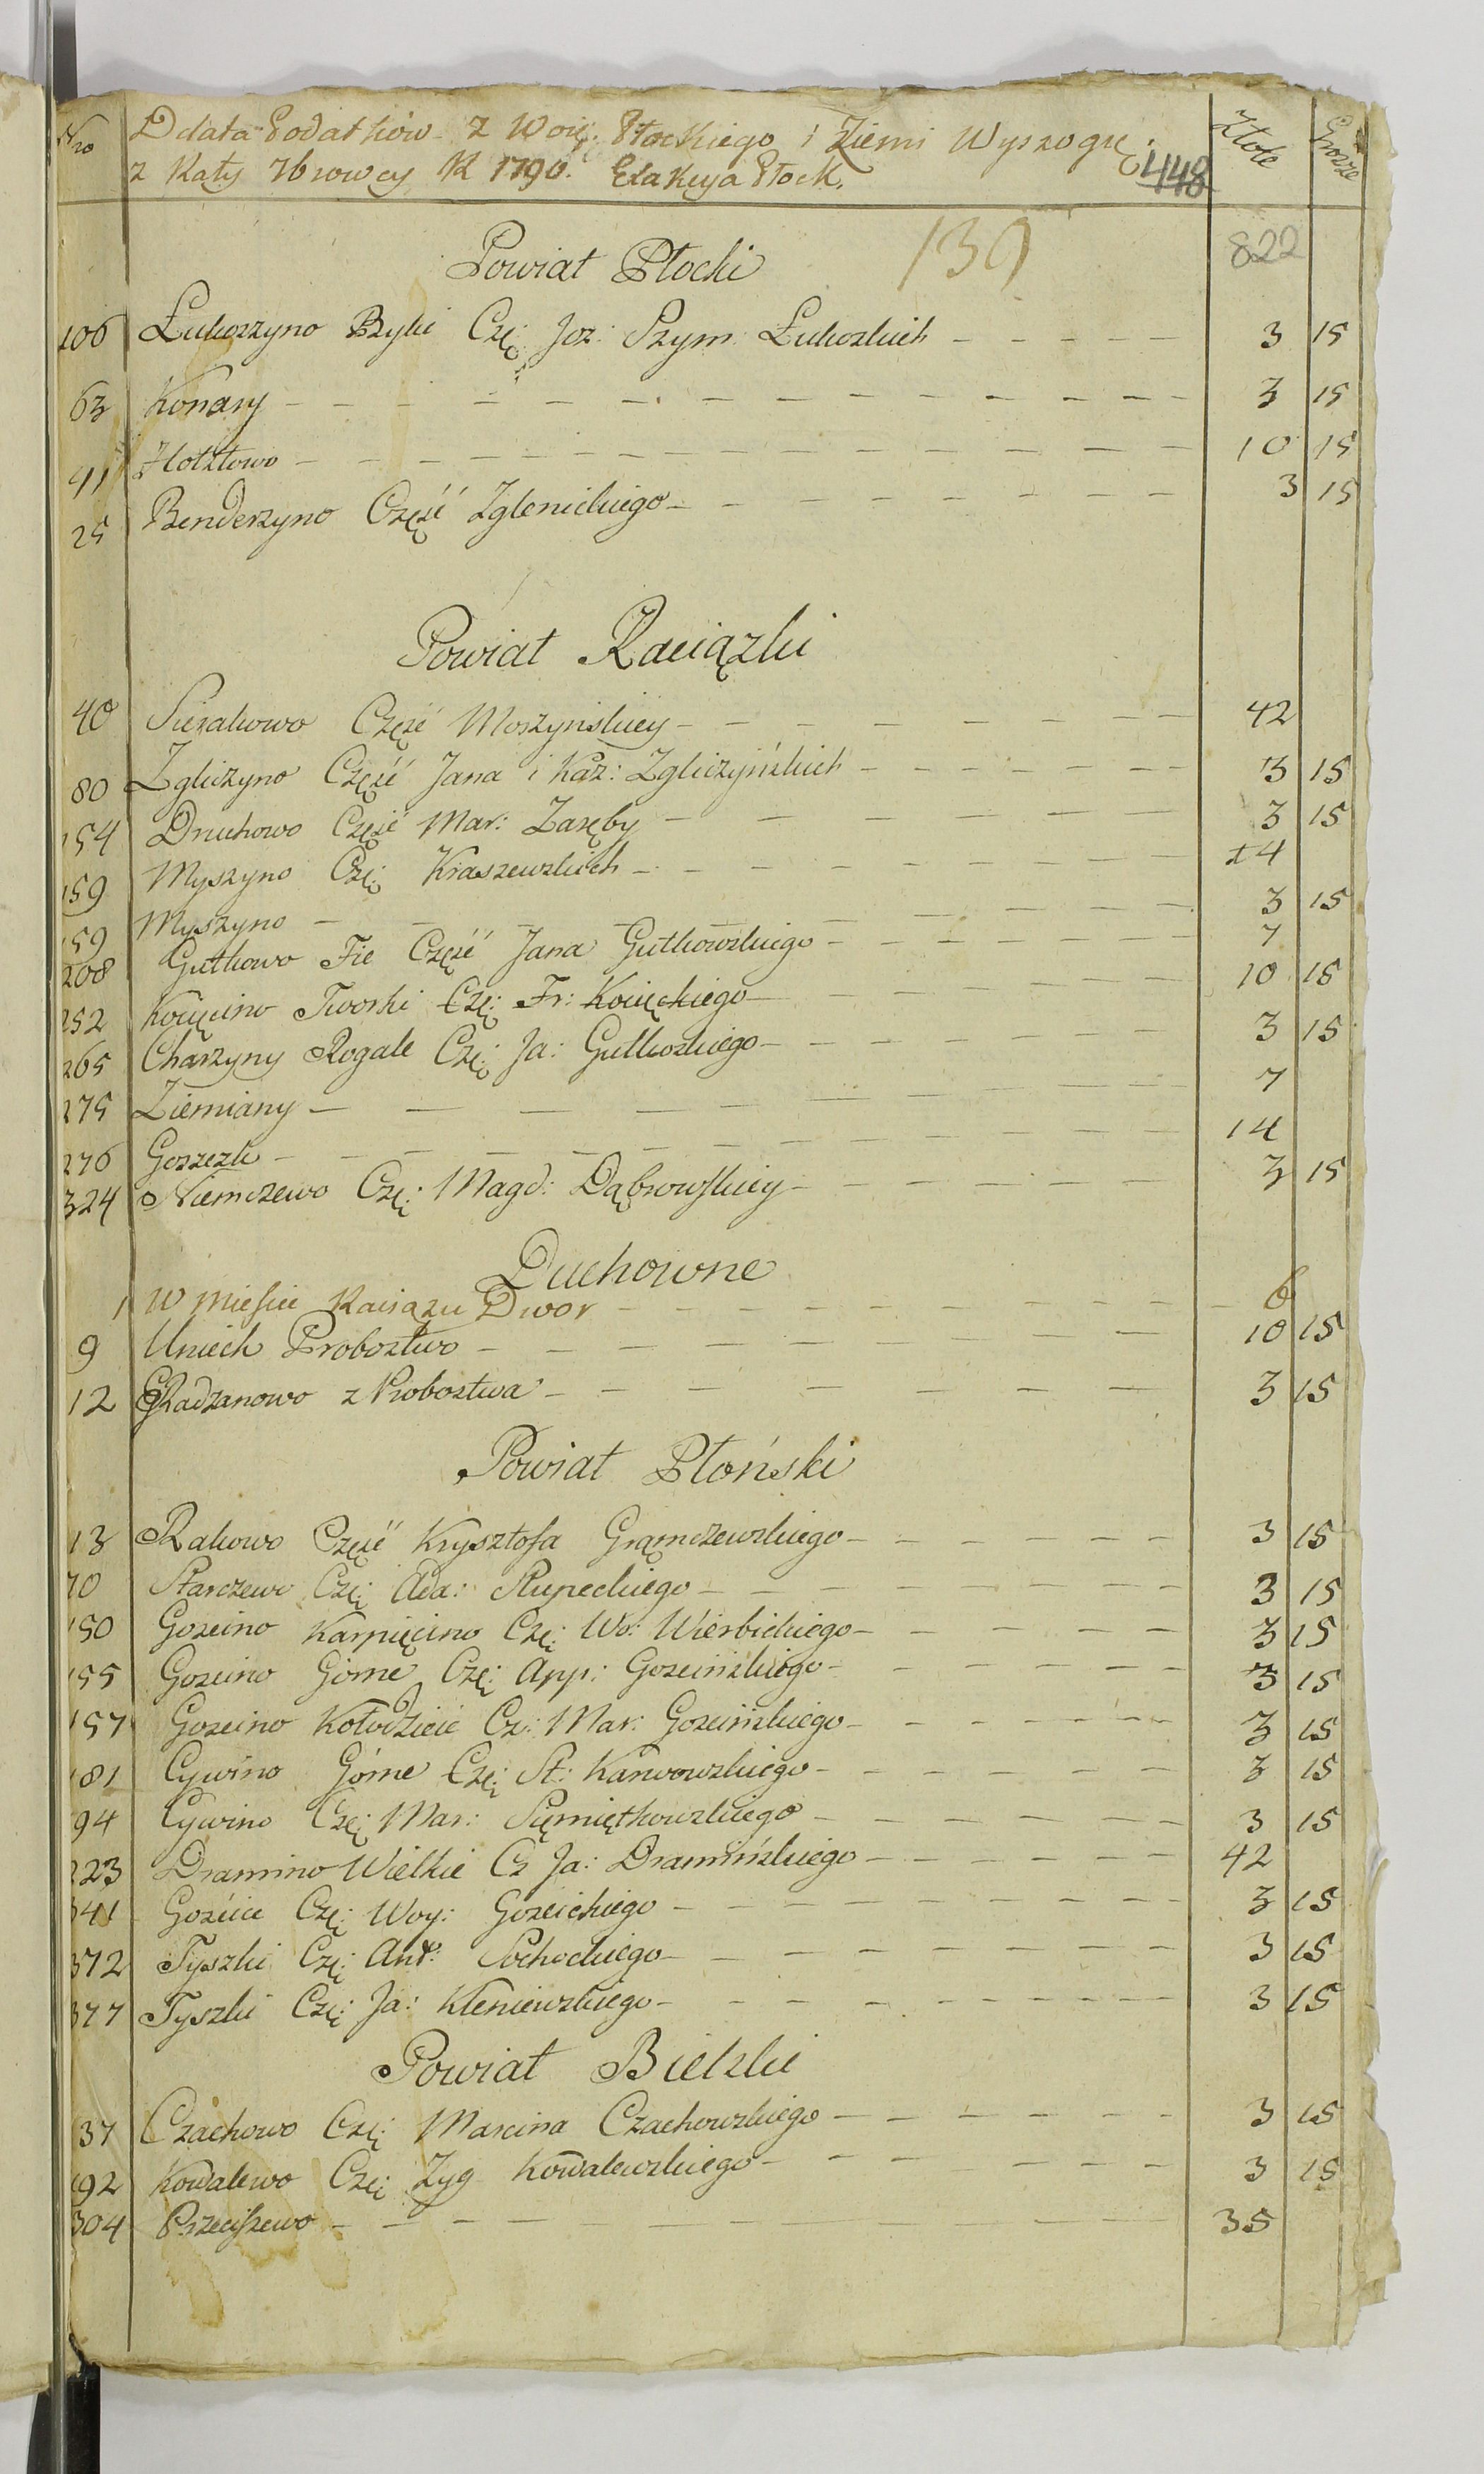 Nro Ddata Podatków z Woię. Płockiego i Ziemi Wyszogrę. Złote Grosze
z Raty Zbrowey R 1790. Exakcya Płock. 448
Powiat Płocki 139 822
106 Łukoszyno Byki Czę: Joz: Szym: Łukoskich 3 15
63 Konary 3 15
41 Hołtowo 10 15
25 Benderzyno Część Zglenickiego 3 15
Powiat Raciązki
40 Sierakowo Część Moszynskiey 42
80 Zgliczyno Część Jana i Kaz: Zgliczyńskich 3 15
154 Druchowo Część Mar: Zaręby 3 15
159 Myszyno Czę: Kraszewskich 14
159 Myszyno 3 15
208 Gutkowo Fie Część Jana Gutkowskiego 7
252 Kocięcino Tworki Czę: Fr: Kocięckiego 10 15
265 Charzyny Rogale Czę: Ja: Gutkoskiego 3 15
275 Ziemiany 7
276 Goszczk 14
324 Niemczewo Czę: Magd: Dąbrowskiey 3 15
Duchowne
1 W Mieście Raciązu Dwor 6
9 Unieck Probostwo 10 15
12 Radzanowo z Probostwa 3 15
Powiat Płoński
13 Rakowo Część Krysztofa Grąmczewskiego 3 15
70 Starczewo Czę: Ada: Słupeckiego 3 15
150 Goscino Karnięcino Czę: Wo: Wierbickiego 3 15
155 Goscino Górne Czę: App: Goscińskiego 3 15
157 Goscino Kołodzieie Cz: Mar: Goscińskiego 3 15
181 Cywino Górne Czę: St: Karwowskiego 3 15
94 Cywino Czę: Mar: Sęmiętkowskiego 3 15
223 Dramino Wielkie Cz Ja: Dramińskiego 42
341 Gościce Czę: Woy: Goscickiego 3 15
372 Tyszki Czę: Ant: Sochockiego 3 15
377 Tyszki Czę: Ja: Kleniewskiego 3 15
Powiat Bielski
37 Czachowo Czę: Marcina Czachowskiego 3 15
92 Kowalewo Czę: Zyg Kowalewskiego 3 15
304 Przeciszewo 35